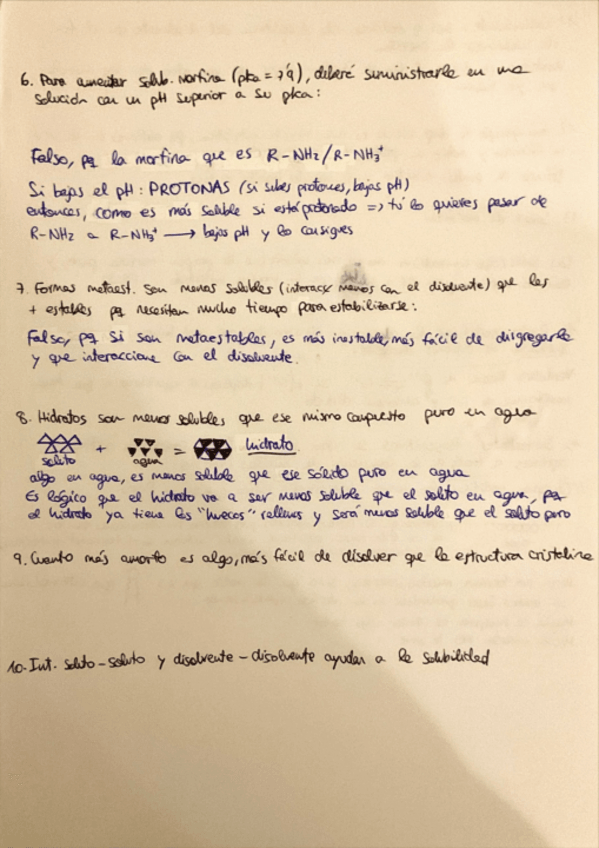 6. Para aumentar solub. Morfina (pka = 7'9), deberé suministrarle en una
solución con un pH superior a su pka:
Falso, pq la morfina que es R-NH2/R-NH3+
Si bajas el pH: PROTONAS (si subes protones, bajas pH)
entonces, como es más soluble si está protonado => tú lo quieres pasar de
R-NH2 a R-NH3+ → bajas pH y lo consigues
7. Formas metaest. son menos solubles (interacx menos con el disolvente) que las
+ estables pq necesitan mucho tiempo para estabilizarse:
Falso, pq si son metaestables, es más inestable, más fácil de disgregarle
y que interaccione con el disolvente.
8. Hidratos son menos solubles que ese mismo compuesto puro en agua
+ = hidrato
soluto agua
algo en agua, es menos soluble que ese sólido puro en agua
Es lógico que el hidrato va a ser menos soluble que el soluto en agua, pq
el hidrato ya tiene los "huecos" rellenos y será menos soluble que el soluto puro
9. Cuanto más amorfo es algo, más fácil de disolver que la estructura cristalina
10. Int. soluto-soluto y disolvente-disolvente ayudan a la solubilidad